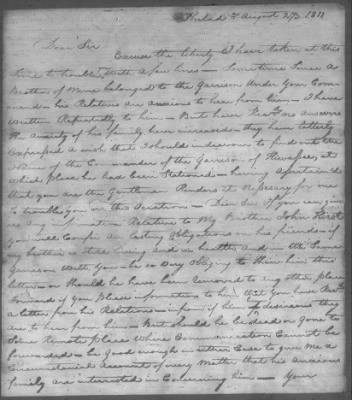 Philad. August 1811
Dear Sir
Excuse the liberty I have taken at this
time to trouble with a few lines — Sometime Since a
Brother of Mine belonged to the Garrison Under Your Com
mand — his Relations are anxious to hear from him — I have
Written Repeatedly to him — But have no Answer
the Anxiety of his family have increased — they have latterly
Expressed a wish that I should endeavour to find out the
Name of the Commander of the Garrison of Hiwassee, at
which place he had been Stationed — having Ascertained
that you are the Gentleman Renders it Necessary for me
to trouble you on this Occasion — Dear Sir if you can give
us any information Relative to My Brother John
you will Confer an lasting Obligations on his friends if
my brother is still living and in health and in the Same
Garrison With You — be so Very Obliging to Shew him this
letter — or Should he have been removed to any other place
forward if you please information to him that you have
a letter from his Relations — inform him how desireous they
are to hear from him — But should he be dead or gone to
Some remote place Where Communication Cannot be
forwarded — be good enough in either Case to give me a
Circumstancial account of every Matter that his Anxious
family are interested in Concerning him — Your